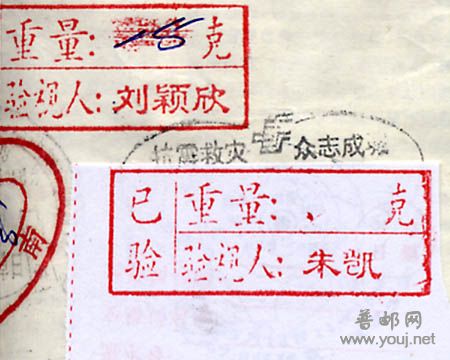 重量: 18 克
验视人: 刘颖欣
抗震救灾 众志成城
已 重量: 克
验 验视人: 朱凯
南
普邮网
www.youj.net